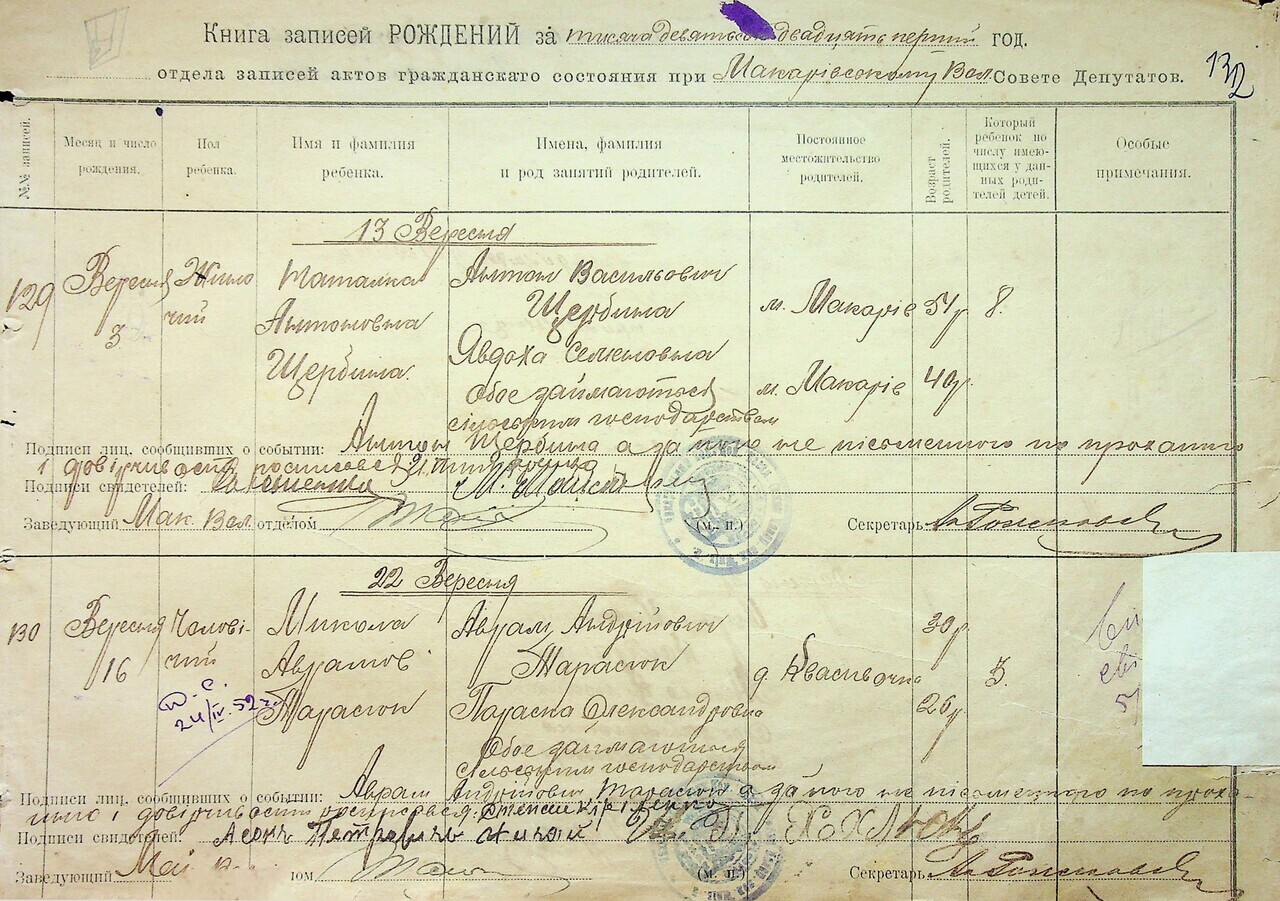 132
Книга записей РОЖДЕНИЙ за тисяча девятьсот двадцять перший год.
отдела записей актов гражданскаго состояния при Макарівському Вол. Совете Депутатов.
№№ записей.
Месяц и число рождения.
Пол ребенка.
Имя и фамилия ребенка.
Имена, фамилия и род занятий родителей.
Постоянное местожительство родителей.
Возраст родителей.
Который ребенок по числу имеющихся у данных родителей детей.
Особые примечания.
13 Вересня
129
Вересня 3
Жиночий
Наталка
Антоновна
Щербина.
Антон Васильович
Щербина
Явдоха Семеновна
Обое займаються
сільським господарством
м. Макарів 51 р. 8.
м. Макарів 40 р.
Подписи лиц, сообщивших о событии: Антон Щербина а за його не письменного по проханню
і довірчивости росписався
Подписи свидетелей:
Заведующий Мак. Вол. отделом
(м. п.)
Секретарь
22 Вересня
130
Вересня 16
Чоловічий
Микола
Аврамов
Тарасюк
Аврам Андрійович
Тарасюк
Параска Олександровна
Обое займаються
сільським господарством
30 р.
26 р.
3.
24/IV. 52 г.
Подписи лиц, сообщивших о событии: Аврам Андрійович Тарасюк а за його не письменного по проханню і довірчивости
Подписи свидетелей: Петровичь
Заведующий
(м. п.)
Секретарь